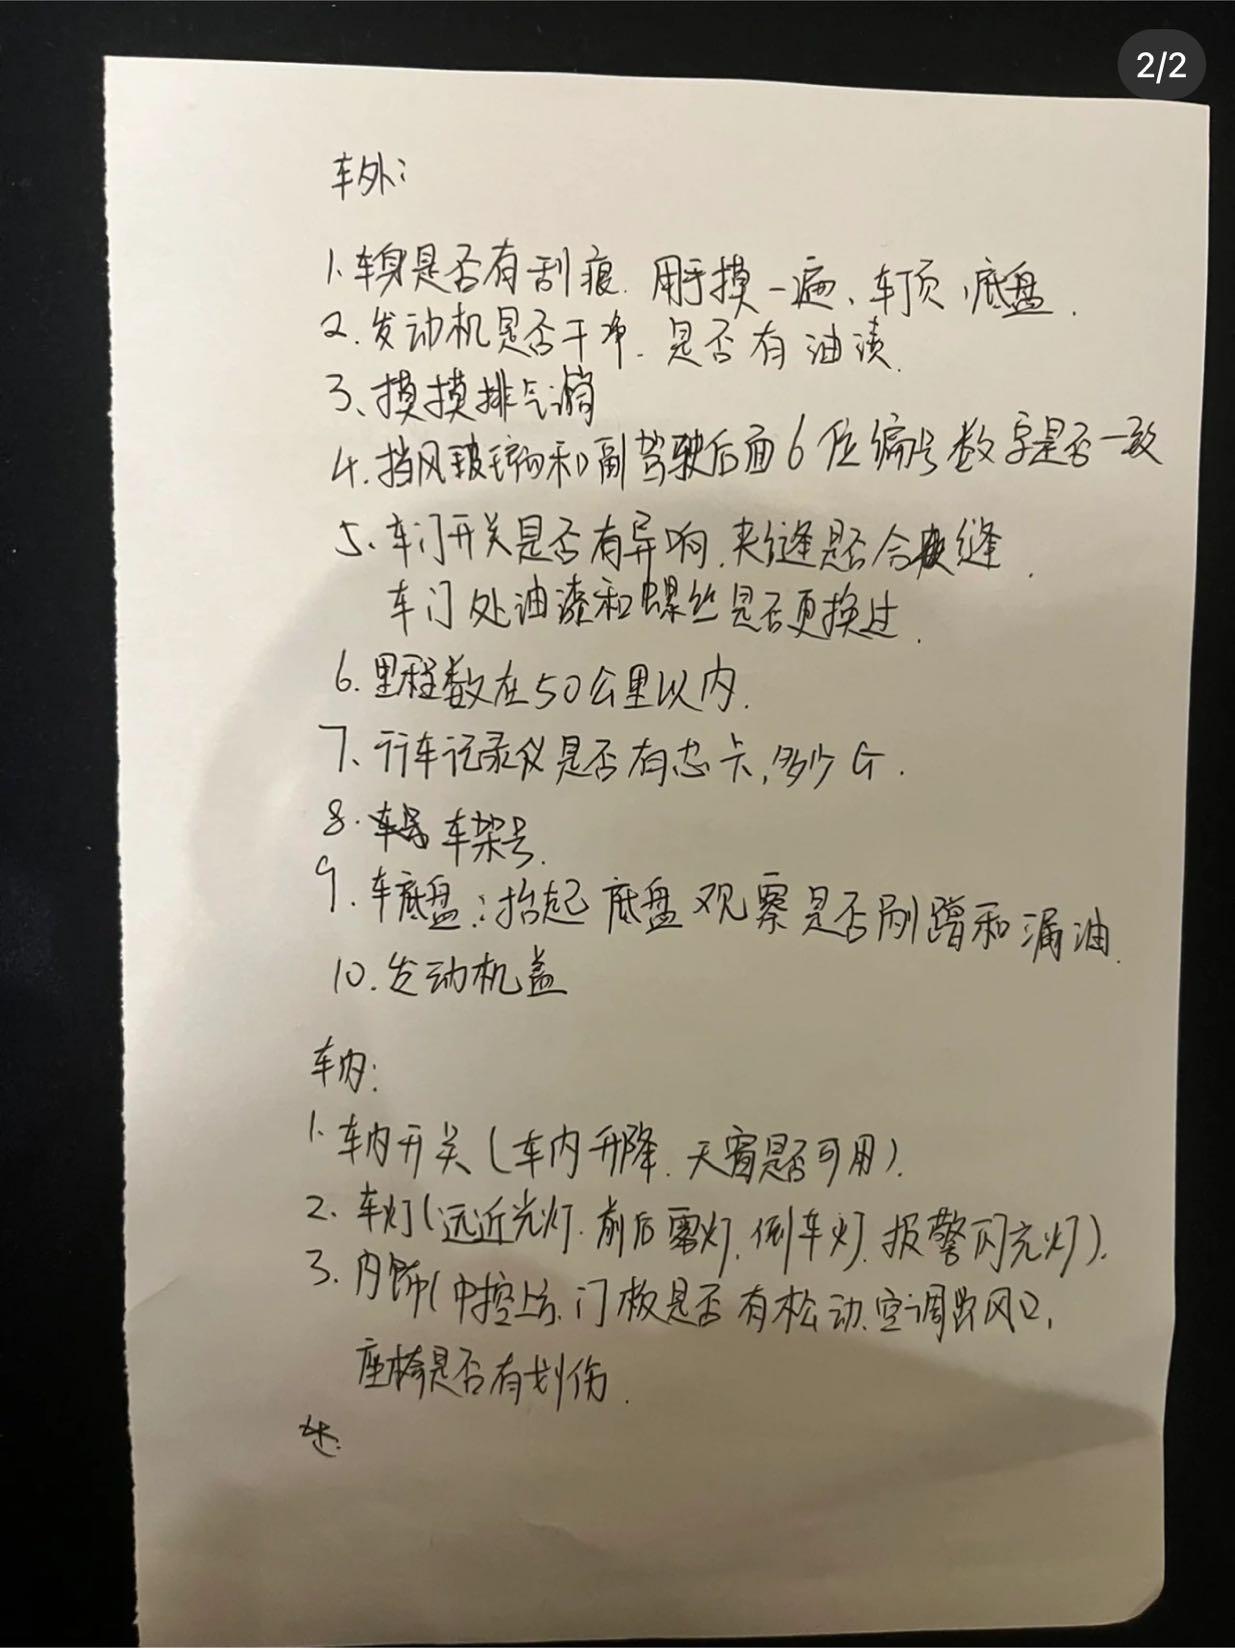 2/2
车外：
1.车身是否有刮痕.用手摸一遍、车顶、底盘.
2.发动机是否干净.是否有油渍.
3、摸摸排气筒
4.挡风玻璃和副驾驶后面6位编号数字是否一致
5、车门开关是否有异响.夹缝是否合缝.
车门处油漆和螺丝是否更换过.
6.里程数在50公里以内.
7、行车记录仪是否有芯卡,多少G.
8.车架号.
9.车底盘：抬起底盘观察是否剐蹭和漏油.
10.发动机盖
车内：
1.车内开关(车内升降.天窗是否可用).
2.车灯(远近光灯.前后雾灯.倒车灯.报警闪光灯).
3.内饰(中控台.门板是否有松动.空调出风口,
座椅是否有划伤.